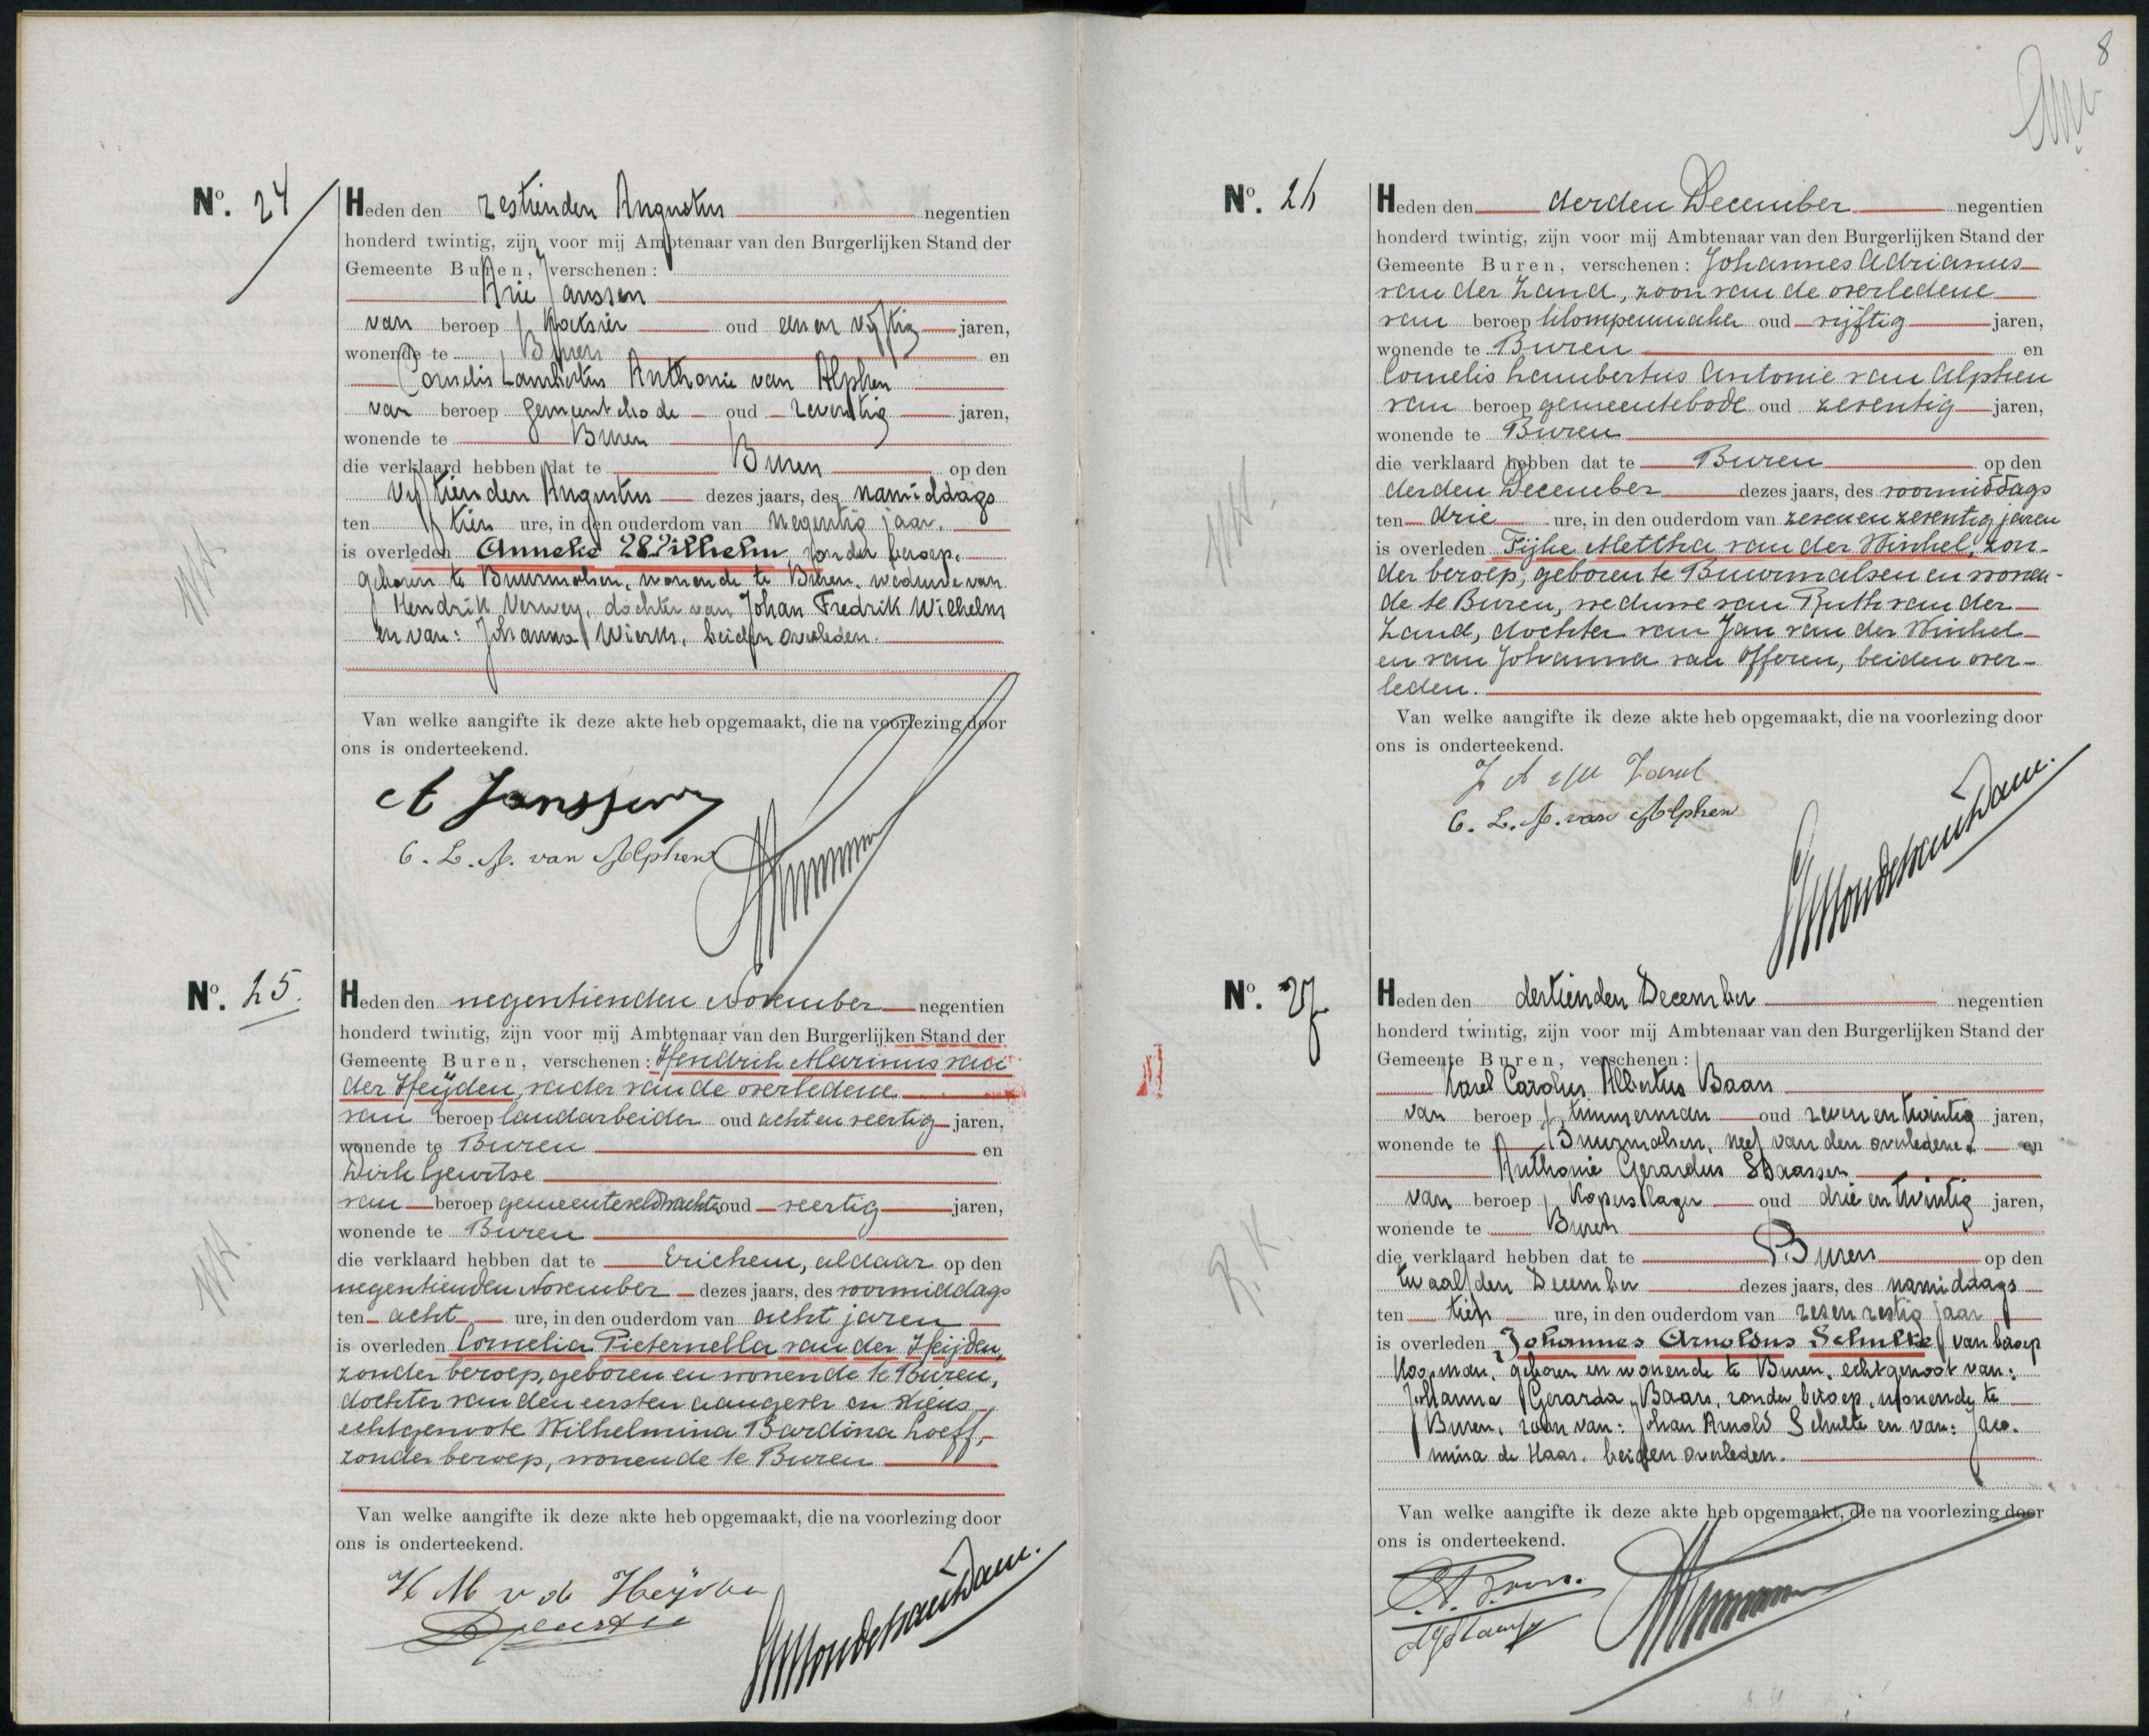 Nº. 24
Heden den zestienden Augustus negentien
honderd twintig, zijn voor mij Ambtenaar van den Burgerlijken Stand der
Gemeente Buren, verschenen:
Arie Janssen
van beroep koetsier oud een en vijftig jaren,
wonende te Buren en
Cornelis Lambertus Anthonie van Alphen
van beroep gemeentebode oud zeventig jaren,
wonende te Buren
die verklaard hebben dat te Buren op den
vijftienden Augustus dezes jaars, des namiddags
ten tien ure, in den ouderdom van negentig jaar.
is overleden Anneke Wilhelm, zonder beroep,
geboren te Buurmalsen, wonende te Buren, weduwe van
Hendrik Verwey, dochter van Johan Fredrik Wilhelm
en van: Johanna Wierks, beiden overleden.
Van welke aangifte ik deze akte heb opgemaakt, die na voorlezing door
ons is onderteekend.
A Janssen
C. L. A. van Alphen
NH
Nº. 25.
Heden den negentienden November negentien
honderd twintig, zijn voor mij Ambtenaar van den Burgerlijken Stand der
Gemeente Buren, verschenen: Hendrik Marinus van
der Heijden, vader van de overledene
van beroep landarbeider oud acht en veertig jaren,
wonende te Buren en
Dirk Geurtse
van beroep gemeenteveldwachter oud veertig jaren,
wonende te Buren
die verklaard hebben dat te Erichem, aldaar op den
negentienden November dezes jaars, des voormiddags
ten acht ure, in den ouderdom van acht jaren
is overleden Cornelia Pieternella van der Heijden,
zonder beroep, geboren en wonende te Buren,
dochter van den eersten aangever en diens
echtgenoote Wilhelmina Bardina Loeff,
zonder beroep, wonende te Buren
Van welke aangifte ik deze akte heb opgemaakt, die na voorlezing door
ons is onderteekend.
H M v d Heijden
NH.
8
Nº. 26
Heden den derden December negentien
honderd twintig, zijn voor mij Ambtenaar van den Burgerlijken Stand der
Gemeente Buren, verschenen: Johannes Adrianus
van der Zand, zoon van de overledene
van beroep klompenmaker oud vijftig jaren,
wonende te Buren en
Cornelis Lambertus Antonie van Alphen
van beroep gemeentebode oud zeventig jaren,
wonende te Buren
die verklaard hebben dat te Buren op den
derden December dezes jaars, des voormiddags
ten drie ure, in den ouderdom van zeven en zeventig jaren
is overleden Fijke Mettha van der Winkel, zon-
der beroep, geboren te Buurmalsen en wonen-
de te Buren, weduwe van Ruth van der
Zand, dochter van Jan van der Winkel
en van Johanna van Offeren, beiden over-
leden.
Van welke aangifte ik deze akte heb opgemaakt, die na voorlezing door
ons is onderteekend.
J A v d Zand
C. L. A. van Alphen
NH.
Nº. 27
Heden den dertienden December negentien
honderd twintig, zijn voor mij Ambtenaar van den Burgerlijken Stand der
Gemeente Buren, verschenen:
Karel Carolus Albertus Baars
van beroep timmerman oud zeven en twintig jaren,
wonende te Buurmalsen, neef van den overledene. en
Anthonie Gerardus Staassen
van beroep koperslager oud drie en twintig jaren,
wonende te Buren
die verklaard hebben dat te Buren op den
twaalfden December dezes jaars, des namiddags
ten tien ure, in den ouderdom van zes en zestig jaar
is overleden Johannes Arnoldus Schulte, van beroep
koopman, geboren en wonende te Buren, echtgenoot van:
Johanna Gerarda Baars, zonder beroep, wonende te
Buren, zoon van: Johan Arnold Schulte en van: Jaco-
mina de Haas. beiden overleden.
Van welke aangifte ik deze akte heb opgemaakt, die na voorlezing door
ons is onderteekend.
R.K.